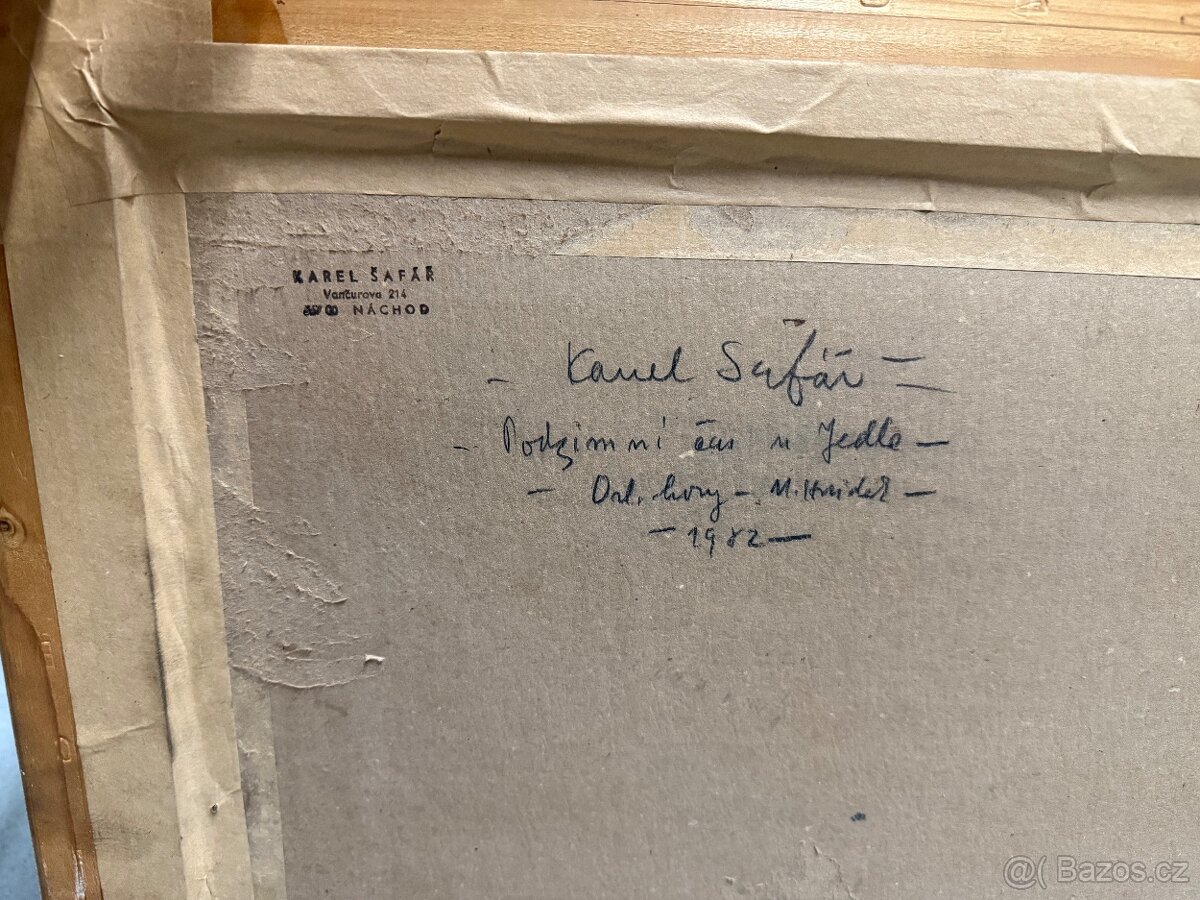 KAREL ŠAFÁŘ
Vančurova 214
NÁCHOD
- Karel Šafář -
- Podzimní čas u Jedle -
- Orl. hory -
- 1982 -
@( Bazos.cz